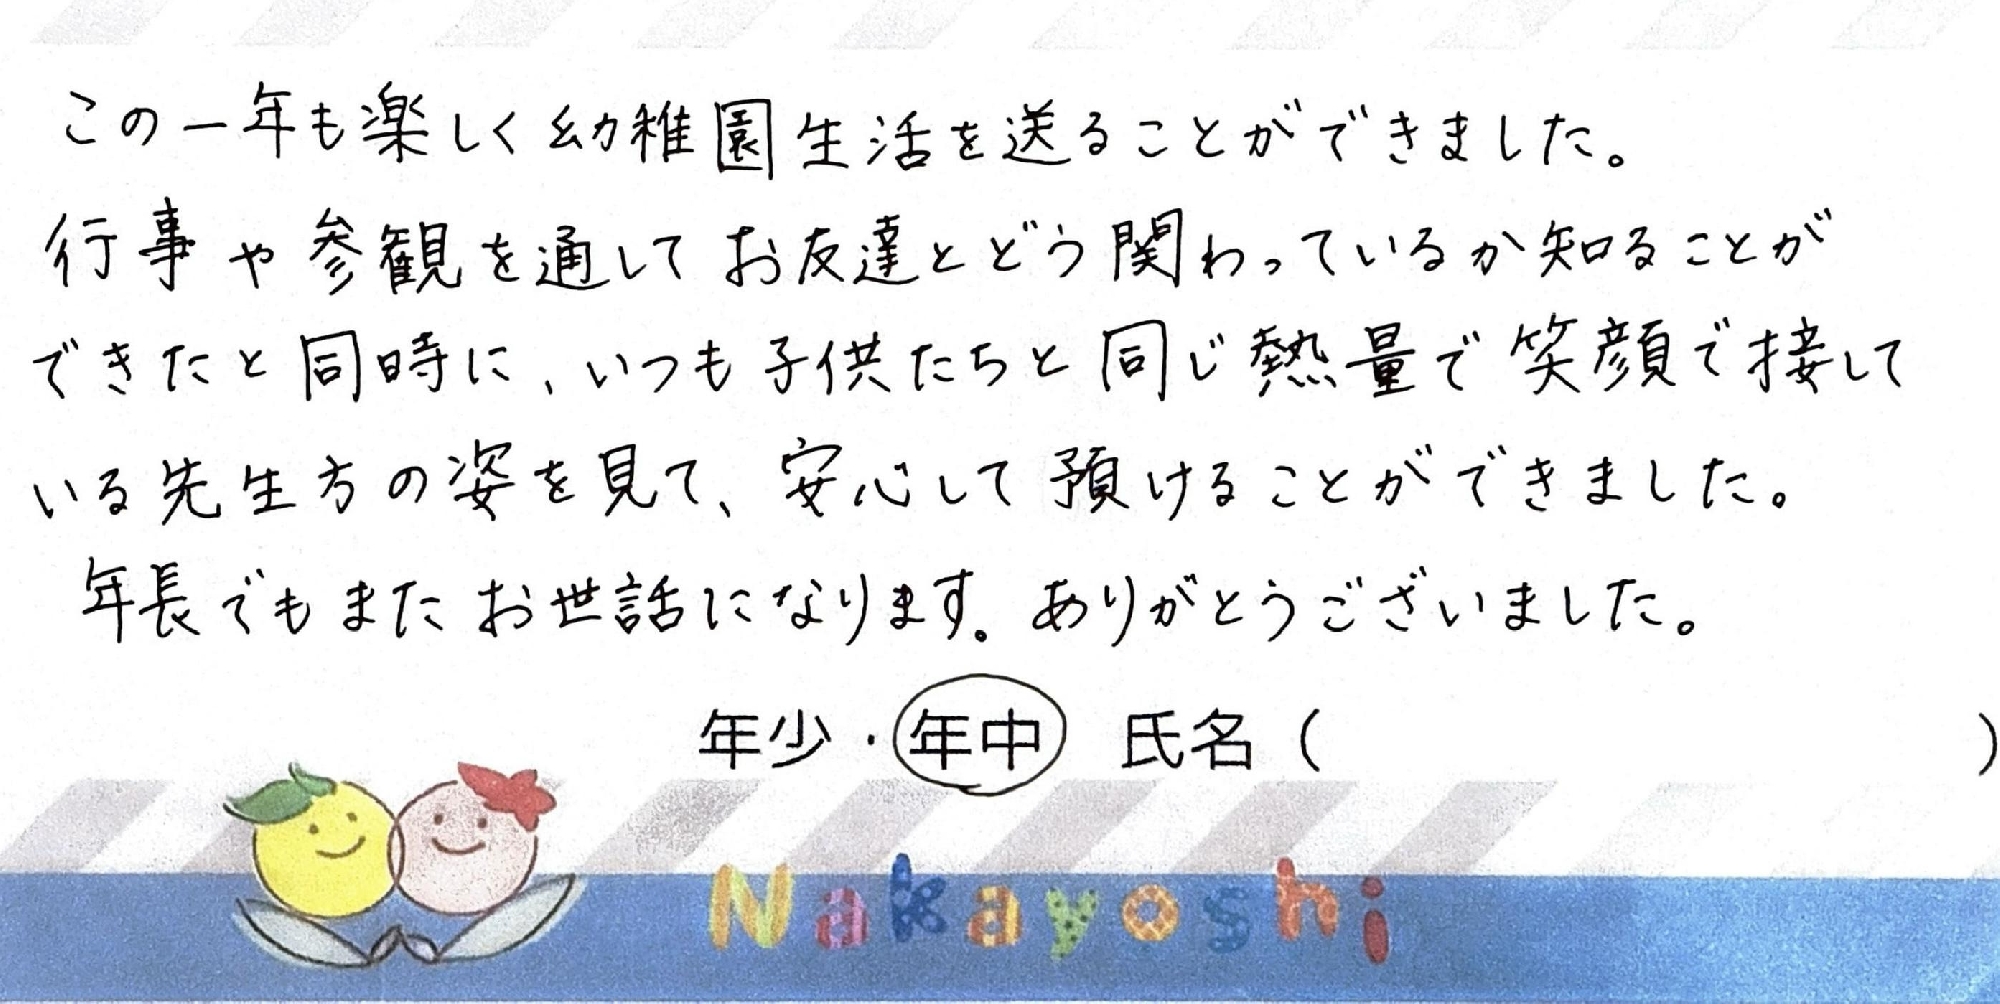 この一年も楽しく幼稚園生活を送ることができました。
行事や参観を通してお友達とどう関わっているか知ることが
できたと同時に、いつも子供たちと同じ熱量で笑顔で接して
いる先生方の姿を見て、安心して預けることができました。
年長でもまたお世話になります。ありがとうございました。
年少・年中 氏名（ ）
Nakayoshi